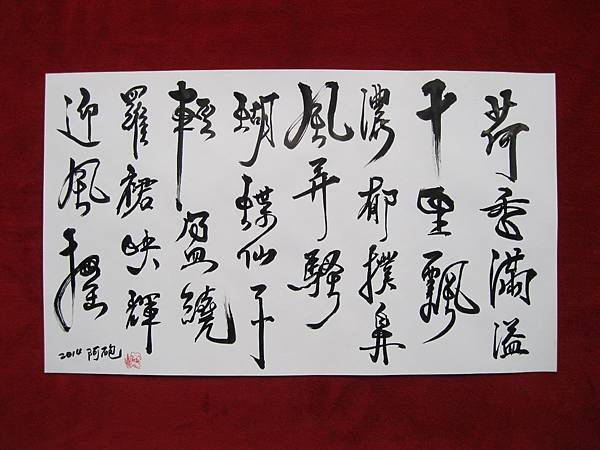 荷香滿溢
千里飄
濃郁撲鼻
風弄騷
蝴蝶仙子
輕盈繞
羅裙映輝
迎風擺
2014 阿砲